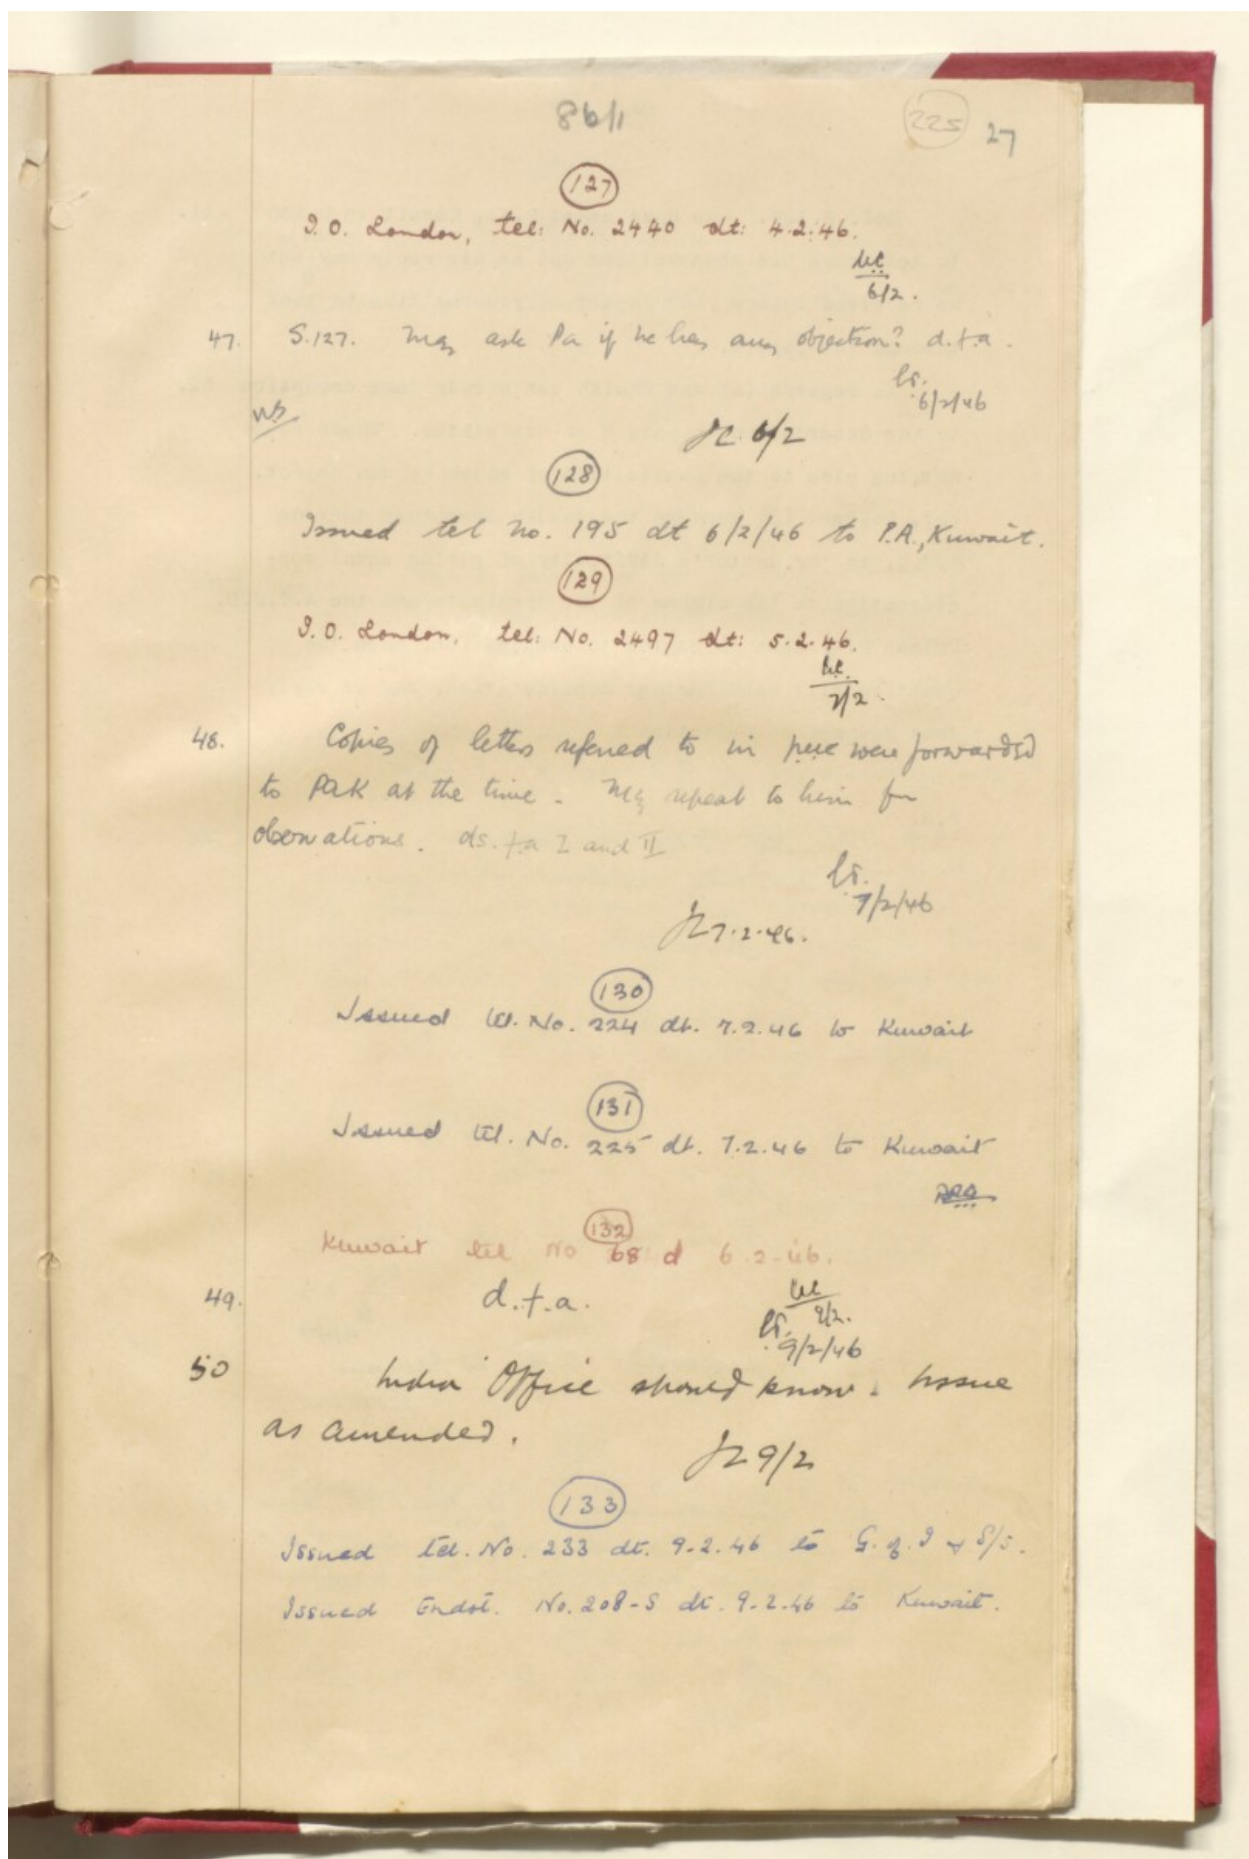 86/1
225 27
127
I.O. London, tel: No. 2440 dt: 4.2.46.
6/2.
47. S.127. May ask Pa if he has any objection? d.f.a.
6/2/46
6/2
128
Issued tel no. 195 dt 6/2/46 to P.A., Kuwait.
129
I.O. London, tel: No. 2497 dt: 5.2.46.
7/2.
48. Copies of letters referred to in puc were forwarded
to PAK at the time. May repeat to him for
observations. ds.f.a I and II
7/2/46
7.2.46.
130
Issued tel. No. 224 dt. 7.2.46 to Kuwait
131
Issued tel. No. 225 dt. 7.2.46 to Kuwait
132
Kuwait tel No 68 d 6.2.46.
49. d.f.a.
9/2.
9/2/46
50 India Office should know. Issue
as amended.
9/2
133
Issued tel. No. 233 dt. 9.2.46 to G. of I & S/S.
Issued Endst. No. 208-S dt. 9.2.46 to Kuwait.